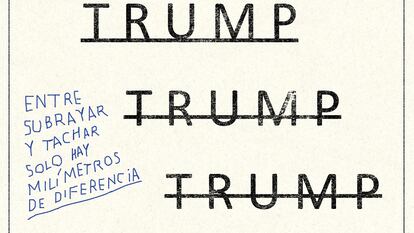 TRUMP
TRUMP
TRUMP
ENTRE
SUBRAYAR
Y TACHAR
SOLO HAY
MILÍMETROS
DE DIFERENCIA